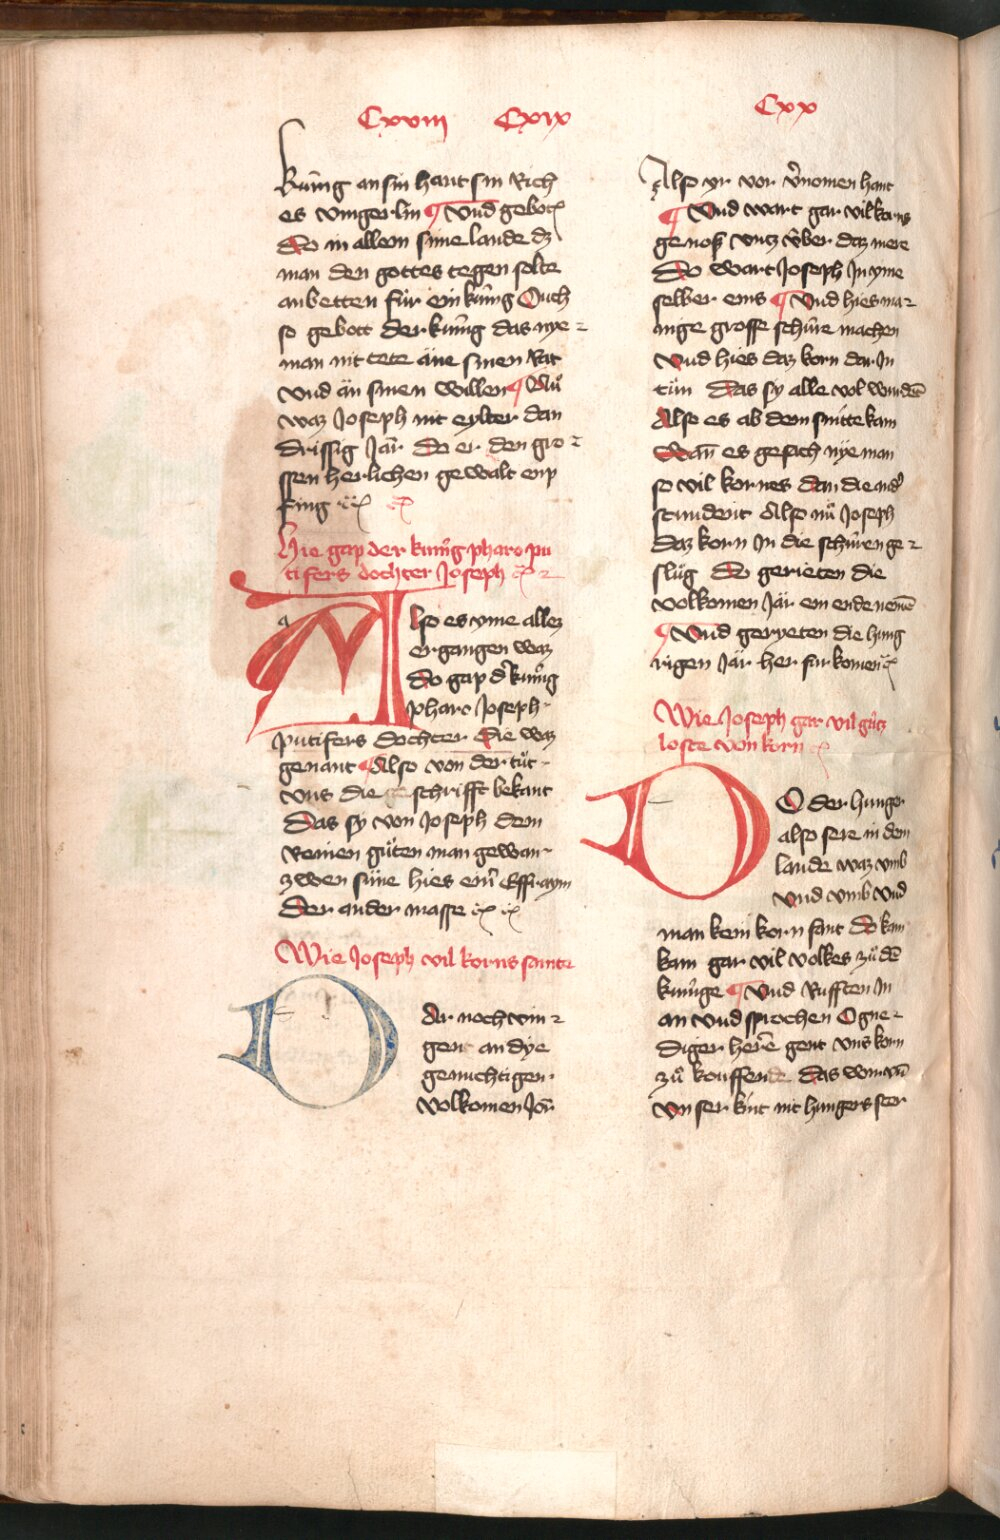 Cxviii Cxix
Kúnig an sin hant sin Rich
es vingerlin ¶ Und gebot
Do in allem sime lande dz
man den gottes tegen solte
anbetten für ein kúnig Ouch
so gebott der kúnig das nye-
man nit tete âne sinen Rat
Und ân sinen willen ¶ Nuͦ
waz Joseph nit eylter dan
drissig Jâr do er den gro-
ssen herlichen gewalt enp
fing
Hie gap der kunig pharo pu
tifers dochter Joseph
Also es yme allez
ergangen waz
do gap dˀ kúnig
pharo Joseph
putifers dochter die waz
genant ¶ Also von der tuͤt
uns die geschrifft bekant
Das sy von Joseph dem
Reinen guͦten man gewan
zwen súne hies eine Effraym
Der ander masse
Wie Joseph vil korns samte
Dar noch vin-
gent an dye
genuchtigen
volkomen Jor
Cxx
Also yr vor v̾nomen hant
¶ Und wart gar vil korns
genoß untz v̾ber daz mere
Do wart Joseph Jn yme
selber eins ¶ Und hies ma-
nige grosse schúre machen
Und hies daz korn dar Jn
tún das sy alle vol wurdē
Also es ab dem snitte kam
Wañ es gesach nyeman
so vil kornes dan die
stundent Also nuͦ Joseph
daz korn Jn die schúren ge-
sluͦg do gerieten die
volkomen Jâr ein ende nemē
¶ Und geryeten die hung
rigen Jâr her fur komen
Wie Joseph gar vil guͦtz
loste von korn
DO der hunger
also sere in dem
lande waz umb
und umb und
man kein korn fant do kam
kam gar vil volkes zuͦ dē
kunige ¶ Und Rufften Jn
an und sprochen O gne-
diger herre gent uns korn
zuͦ kouffende das wir uñ
unser kint nit hungers ster